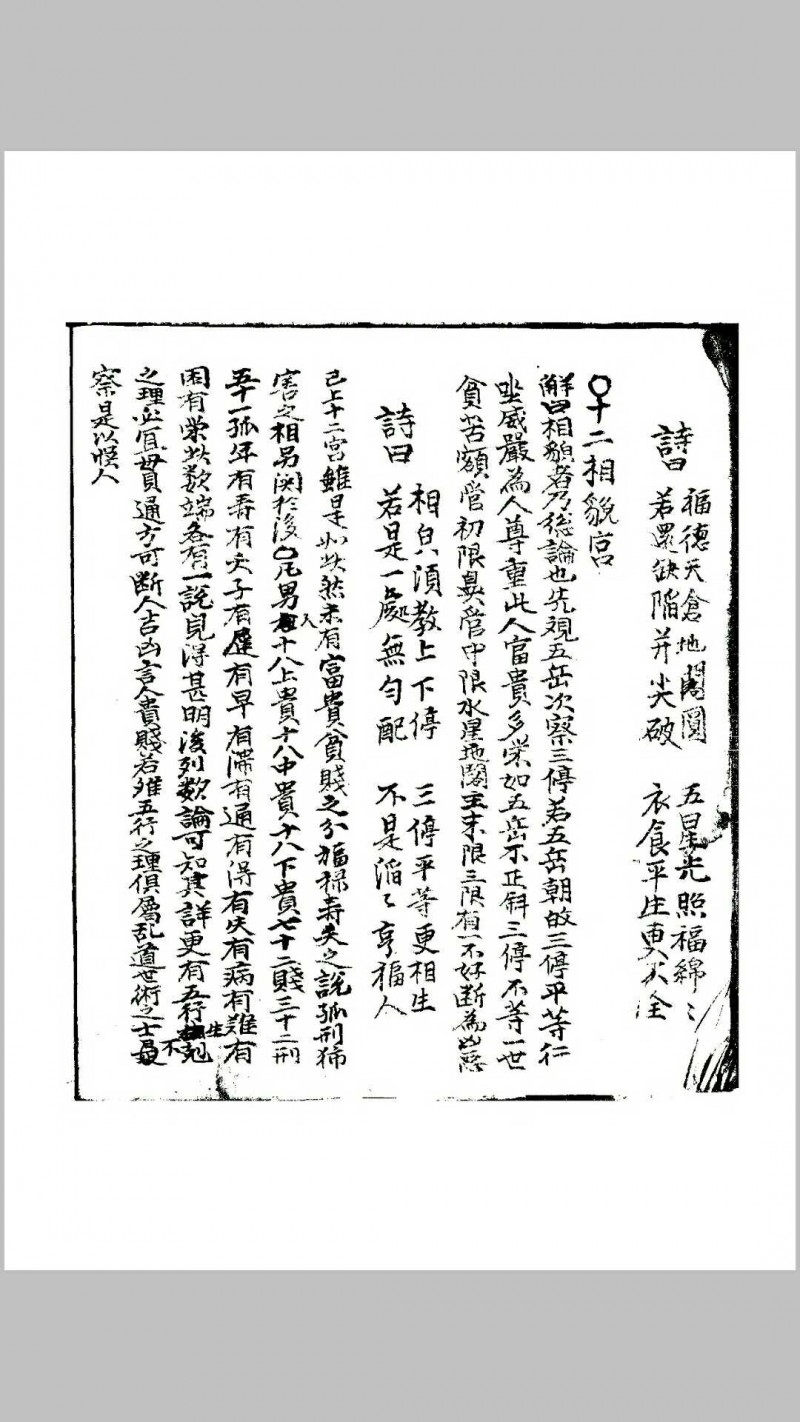 詩曰
福德天倉地閣圓　五星光照福綿〻
若還缺陷并尖破　衣食平生更不全
十二相貌宮
解曰相貌者乃總論也先視五岳次察三停若五岳朝故三停平等行
坐威嚴為人尊重此人富貴多榮如五岳不正斜三停不等一世
貧苦額管初限鼻管中限水星地閣主末限三限有一不好斷為凶惡
詩曰
相皃須教上下停　三停平等更相生
若是一處無勻配　不是滔〻享福人
已上十二宮雖是如此然未有富貴貧賤之分福祿壽夭之說孤刑
害之相另関於後〇凡男人十八上貴十八中貴十八下貴七十二賤三十二刑
五十一孤年有壽有夭子有遲有早有滯有通有得有失有病有難有
困有榮此数端各有一說見得甚明後列数論可知其詳更有五行生剋
之理必宜貫通方可斷人吉凶言人貴賤若雖五行之理俱屬乱道世術之士最不
察是以悮人